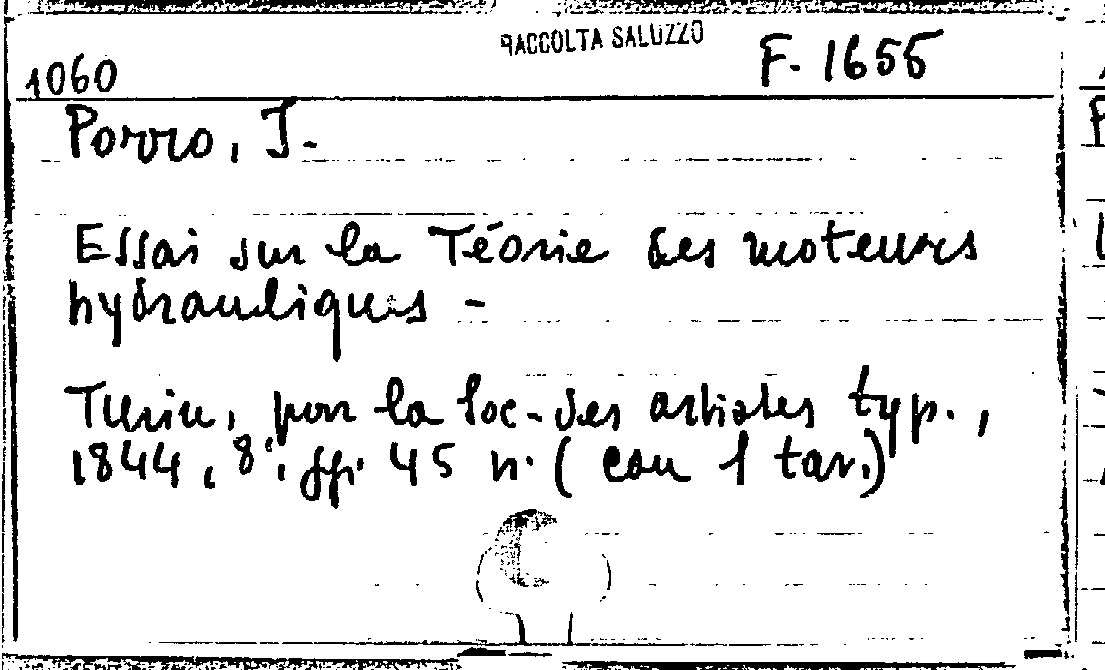 RACCOLTA SALUZZO
1060 F. 1655
Porro, J.
Essai sur la Téorie des moteurs
hydrauliques -
Turin, pour la Soc. des artistes typ.,
1844, 8°, pp. 45 n. (con 1 tav.)